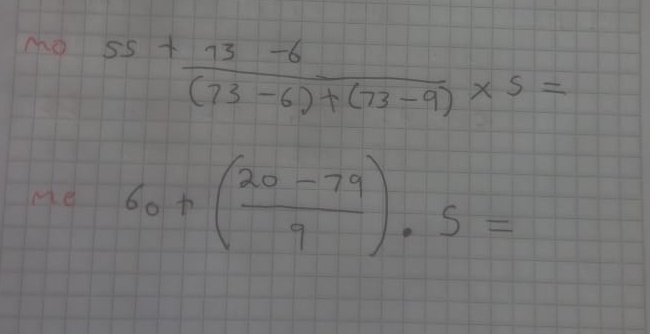 mo 55 + 13 - 6 / (13 - 6) + (13 - 9) × 5 =
me 60 + (20 - 19 / 9) . 5 =